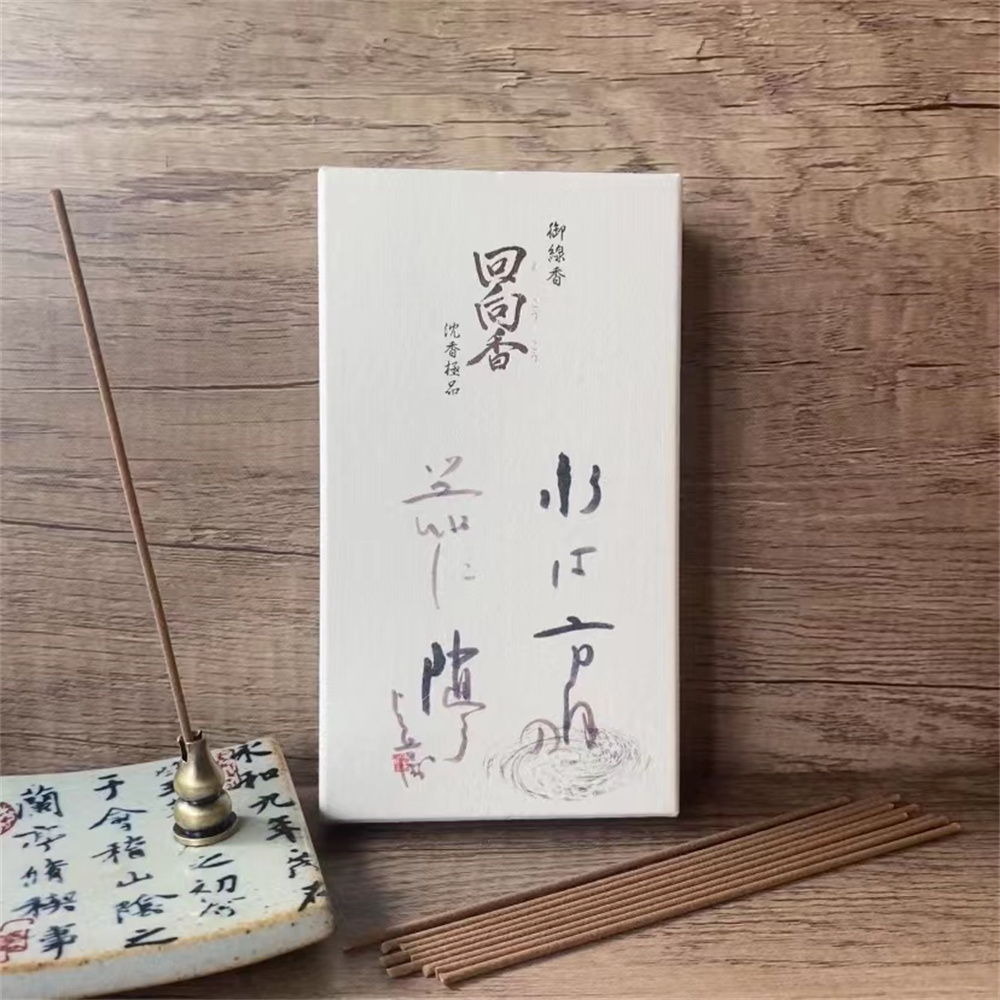 御線香
回向香
えこうこう
沈香極品
水は方円の
器に随う
永和九年
之初
于會稽山陰之
蘭亭脩禊事